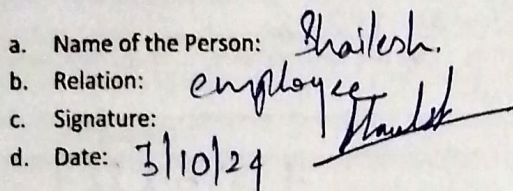 a. Name of the Person: Shailesh.
b. Relation: employee
c. Signature:
d. Date: 3/10/24